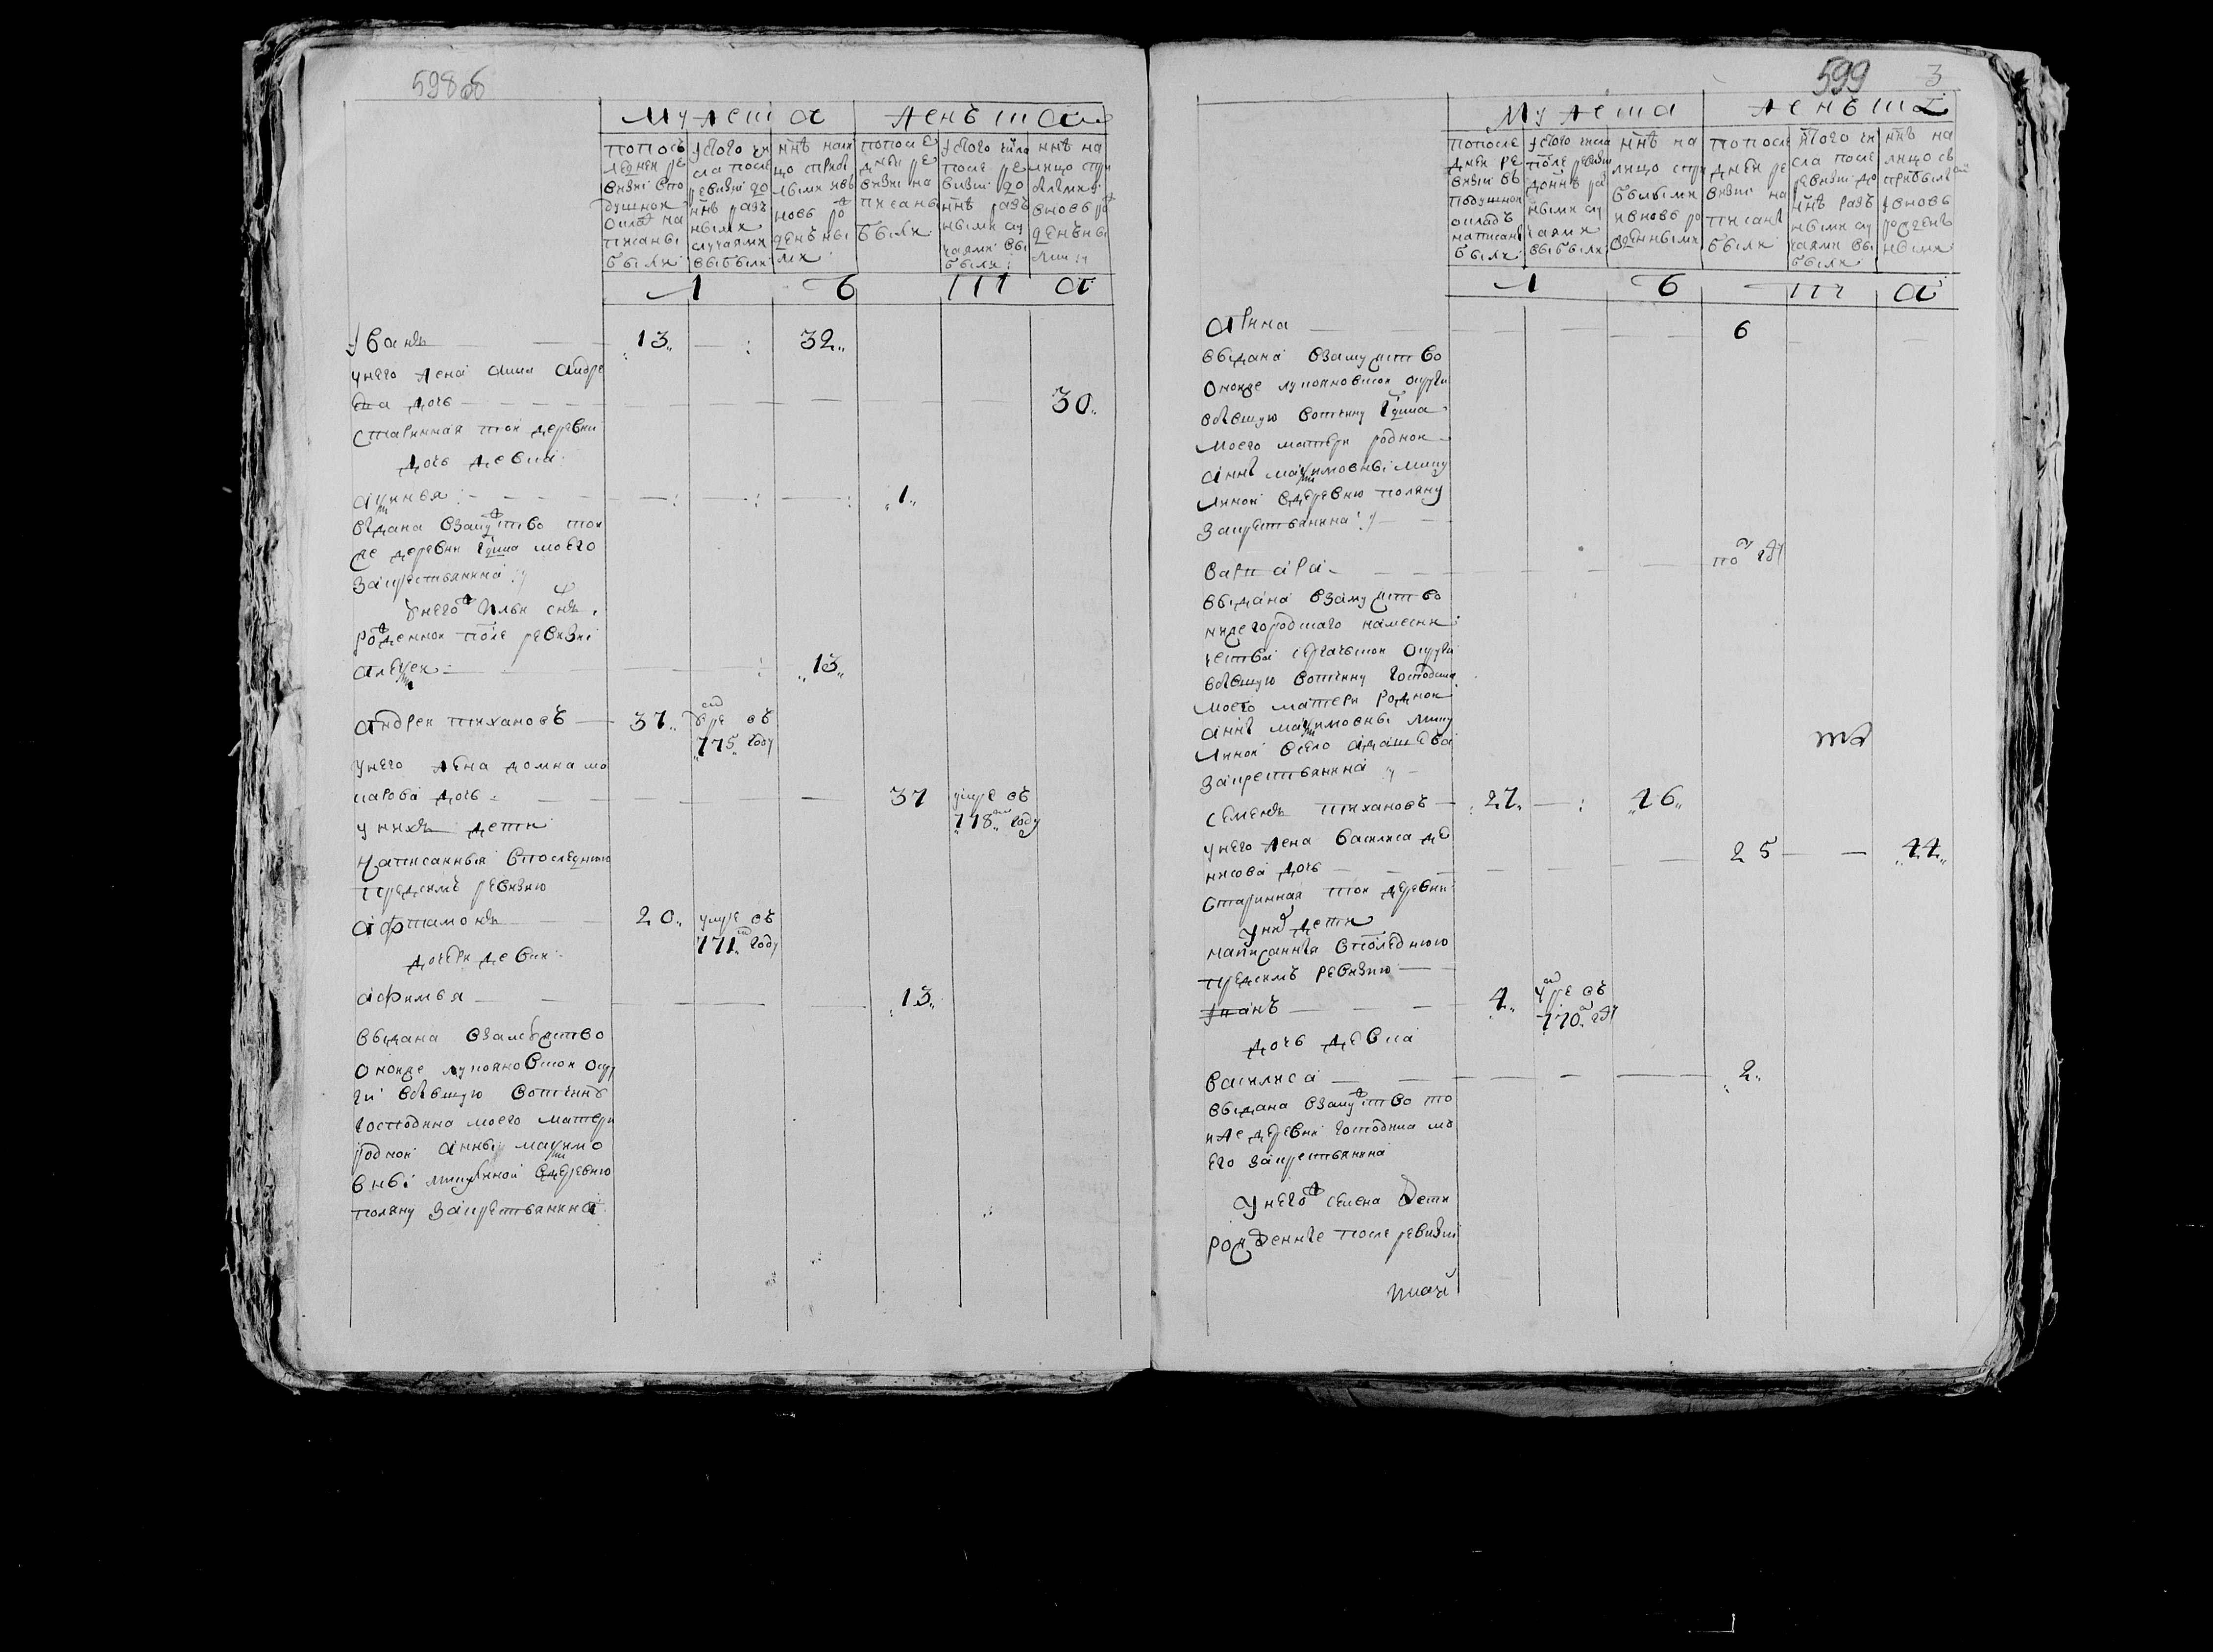 598об
Мужеска Женъска
попосъ
леднеи ре
визиі впо
душнои
окладъ на
писаны
были
істого чи
сла после
ревизиі до
ннѣ разъ
ными
случаями
выбыли
ннѣ нали
цо сприбы
лыми ивь
новь ро
жденъны
ми
попосле
днеи ре
визиі на
писаны
были
істого числа
после ре
визиі до
ннѣ разъ
ными слу
чаями вы
были
ннѣ на
лицо спри
былыми
вновь ро
жденъны
ми
Л Ѣ Т А
Іванъ 13 32
унего жена анна андре
ева дочь 30
Старинная тои деревни
дочь девка
аксинья 1
выдана взамужство тои
же деревни гдина моего
закрестьянина
унегож Ильи снъ
рожденнои после ревизиі
алексеи 13
андреи тихановъ 37 умре въ
775 году
унего жена домна мо
карова дочь 37 умре въ
778 году
унихъ дети
Написанныя впоследнюю
предсимъ ревизию
афтамонъ 20 умре въ
771 году
дочери девки
афимья 13
выдана взамужство
онойже лукояновскои окру
ги вотчину
господина моего матери
роднои анны максимо
вны микулинои вдеревню
поляну закрестьянина
599 3
Мужеска Женъска
попосле
днеи ре
визиі въ
подушнои
окладъ
написаны
были
істого числа
после ревизиі
доннѣ раз
ными слу
чаями
выбыли
ннѣ на
лицо спри
былыми
ивновь ро
жденными
попосле
днеи ре
визиі на
писаны
были
істого чи
сла после
ревизиі до
ннѣ разъ
ными слу
чаями вы
были
ннѣ на
лицо съ
прибылы
івновь
рожденъ
ными
Л Ѣ Т А
арина 6
выдана взамужство
онойже лукояновскои округи
вотчину гдина
моего матери роднои
анны максимовны мику
линои вдеревню поляну
закрестьянина
варвара полгоду
выдана взамужство
нижегородскаго намесни
чества сергачьскои округи
вотчину господина
моего матери роднои
анны максимовны мику
линои всело
закрестьянина
семенъ тихановъ 27 46
унего жена василиса де
нисова дочь 25 44
старинная тои деревни
унихъ дети
написанныя впоследнюю
предсимъ ревизию
Іванъ 4 умре въ
770 году
дочь девка
василиса 2
выдана взамужство то
иже деревни господина мо
его закрестьянина
унегож семена дети
рожденные после ревизиі